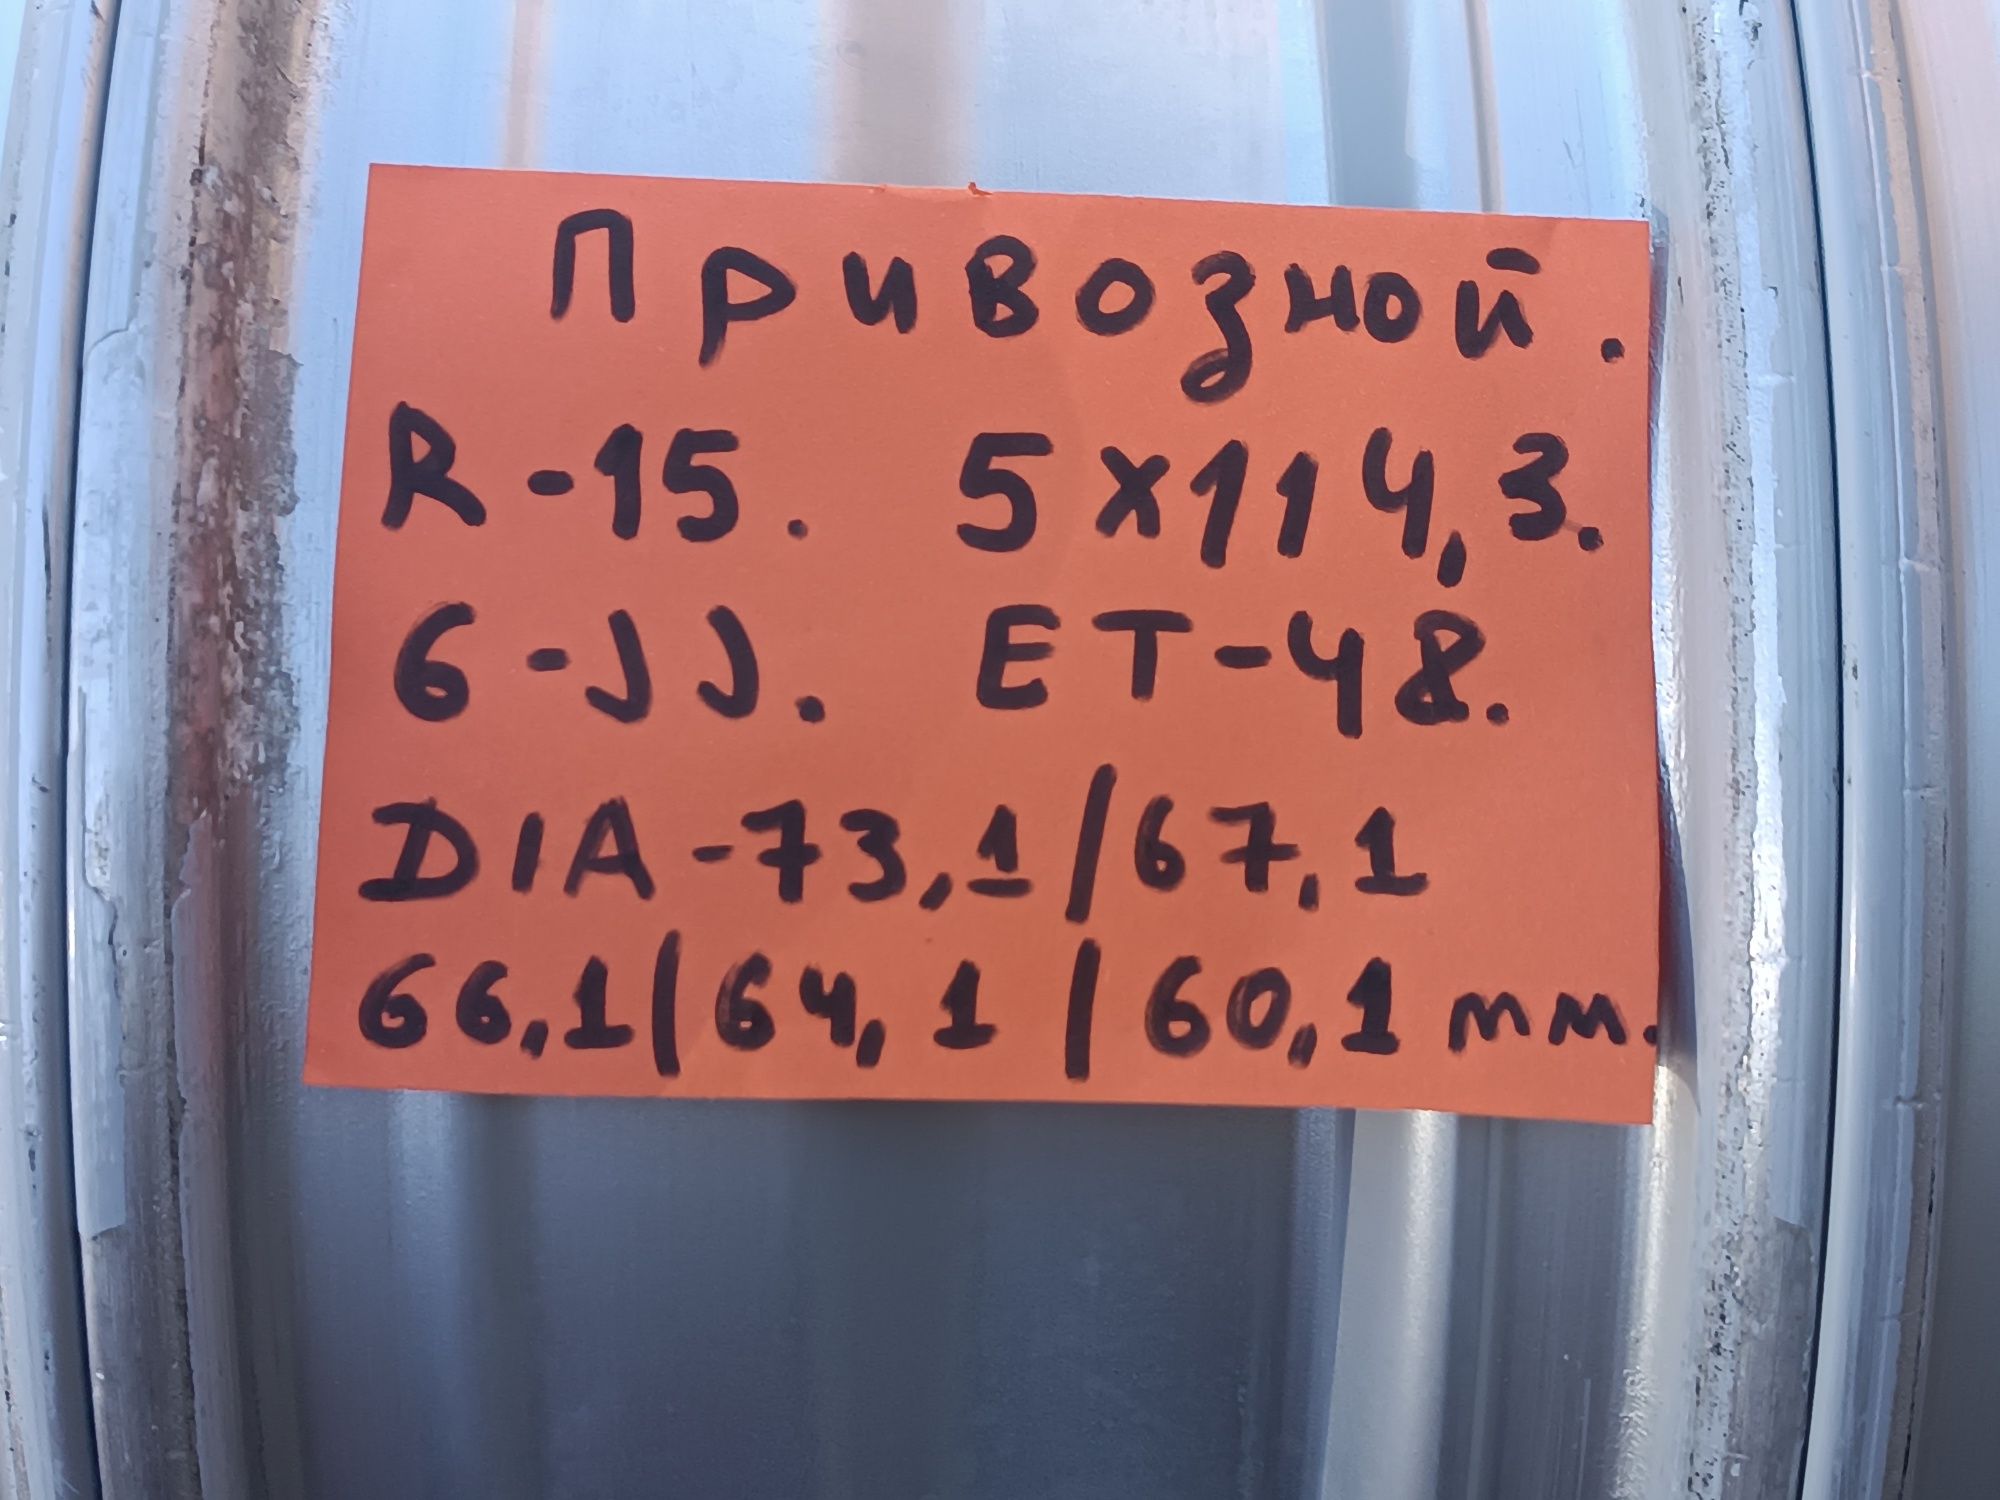 Привозной.
R-15. 5x114,3.
6-JJ. ET-48.
DIA-73,1/67,1
66,1/64,1/60,1 мм.